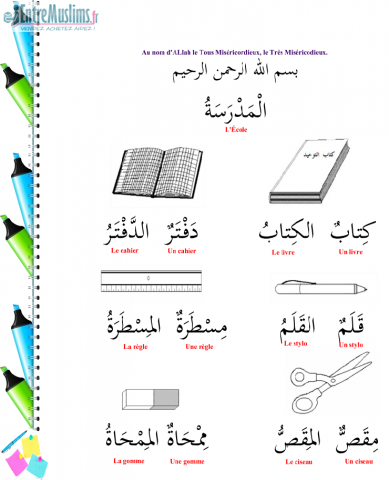 EntreMuslims.fr
VENDEZ ACHETEZ AVISEZ !
Au nom d'ALlah le Tous Miséricordieux, le Très Miséricodieux.
بسم الله الرحمن الرحيم
الْمَدْرَسَةُ
L'École
كتاب التوحيد
كِتابٌ الكِتابُ
Le livre Un livre
دَفْتَرٌ الدَّفْتَرُ
Le cahier Un cahier
قَلَمٌ القَلَمُ
Le stylo Un stylo
مِسْطَرَةٌ المِسْطَرَةُ
La règle Une règle
مِقَصٌّ المِقَصُّ
Le ciseau Un ciseau
مِمْحَاةٌ المِمْحَاةُ
La gomme Une gomme